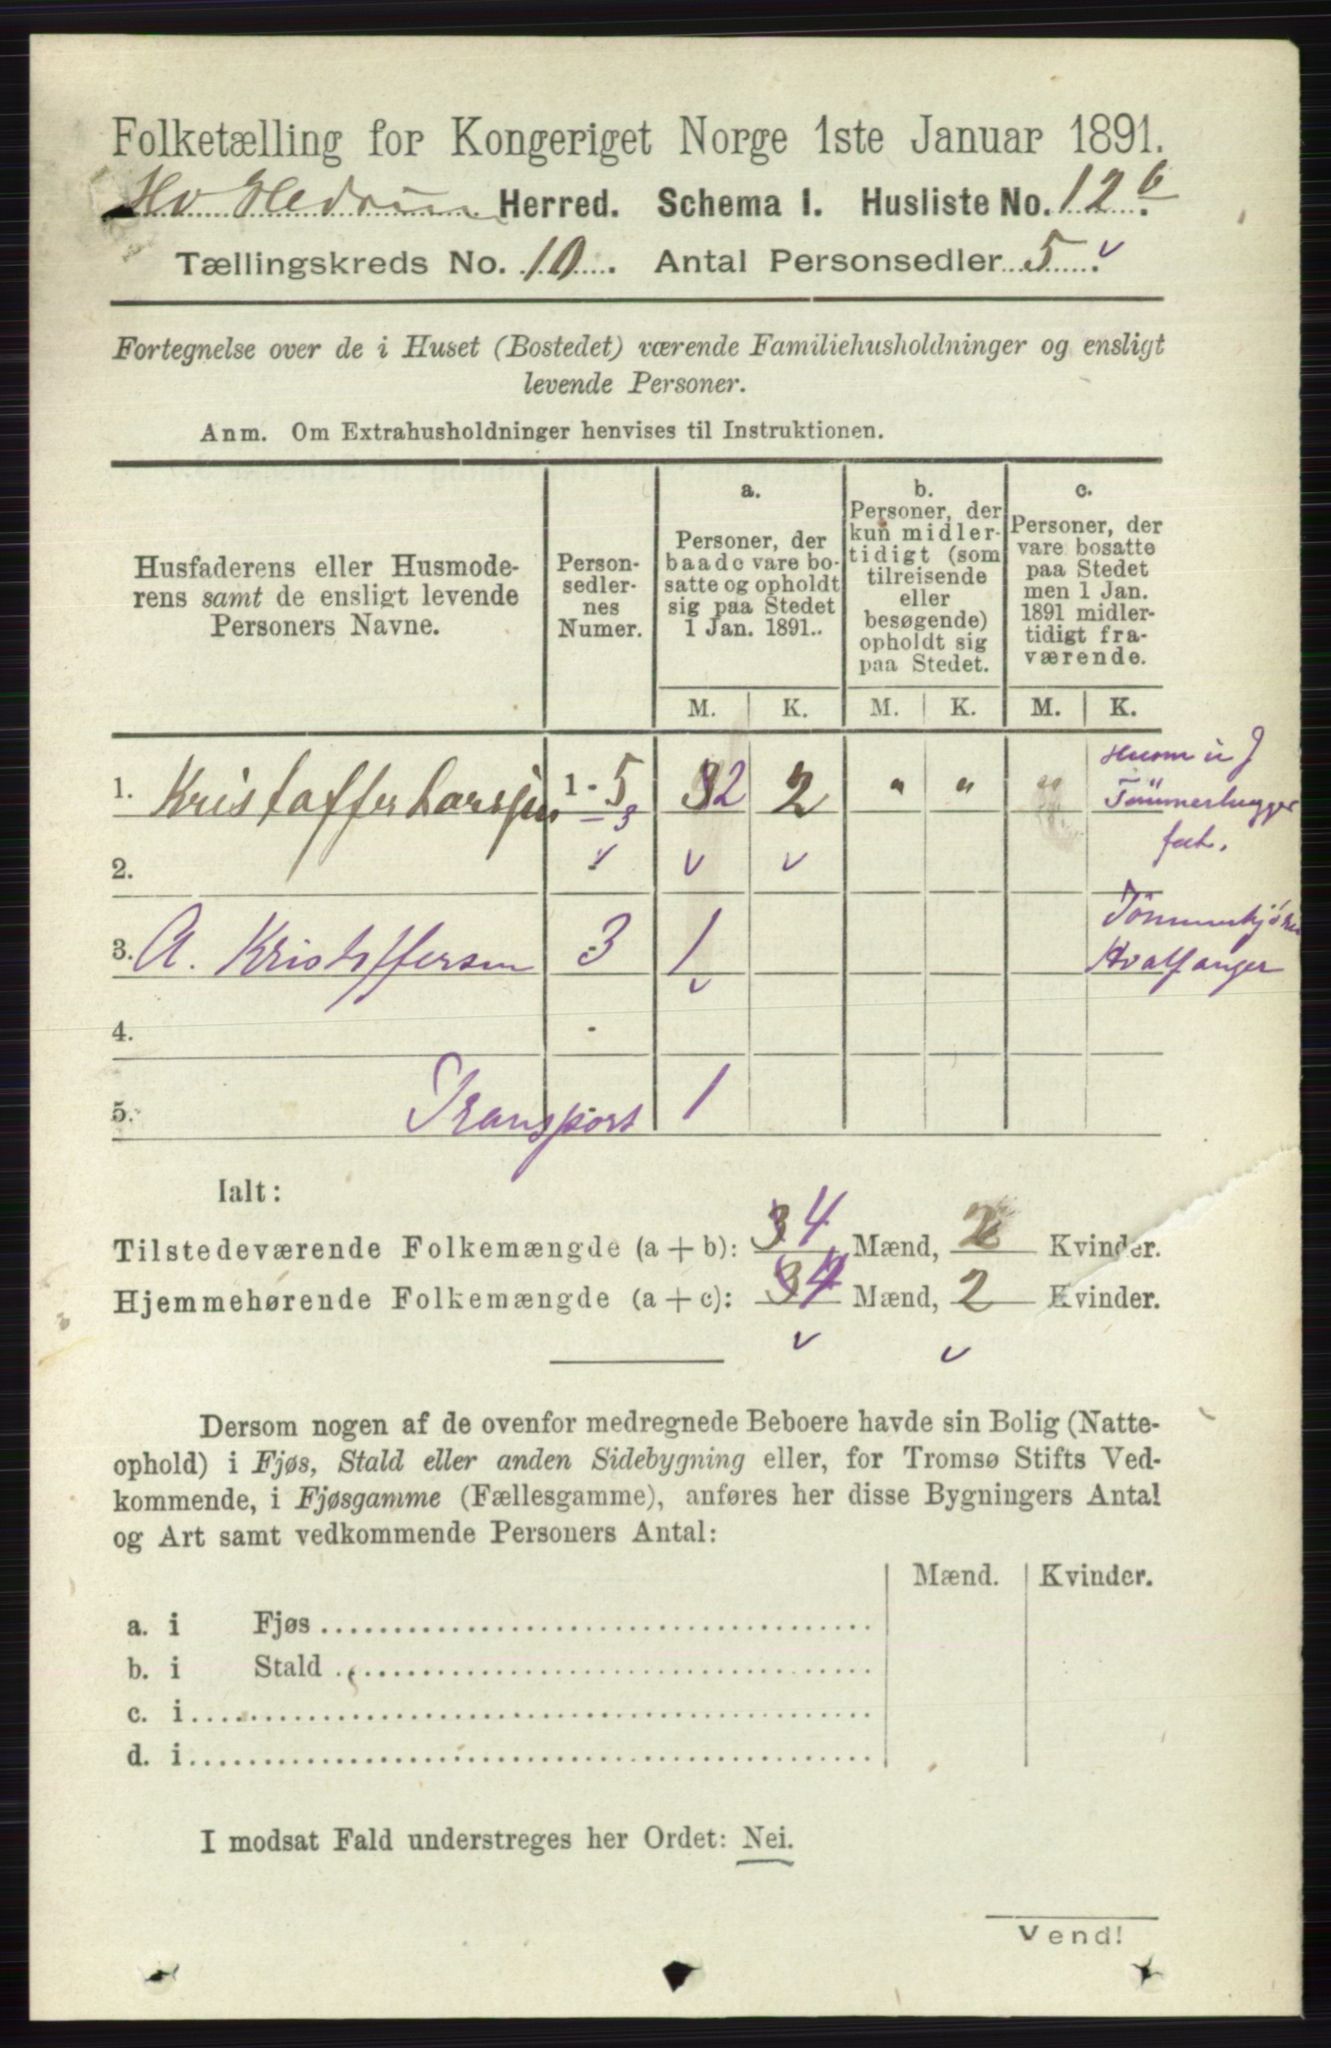 Folketælling for Kongeriget Norge 1ste Januar 1891.
Hedrum Herred. Schema I. Husliste No. 12 b
Tællingskreds No. 10. Antal Personsedler 5 v.
Fortegnelse over de i Huset (Bostedet) værende Familiehusholdninger og ensligt
levende Personer.
Anm. Om Extrahusholdninger henvises til Instruktionen.
Husfaderens eller Husmode-
rens samt de ensligt levende
Personers Navne.
Person-
sedler-
nes
Numer.
a.
Personer, der
baade vare bo-
satte og opholdt
sig paa Stedet
1 Jan. 1891..
b.
Personer, der
kun midler-
tidigt (som
tilreisende
eller
besøgende)
opholdt sig
paa Stedet.
c.
Personer, der
vare bosatte
paa Stedet
men 1 Jan.
1891 midler-
tidigt fra-
værende.
M. K. M. K. M. K.
1. Kristaffer Larssen 1 - 5 32 2 " " "
Tømmerhugger
fat.
- 3
2. v v v
3. A. Kristoffersen 3 1 Tømmerkjører
Hvalfanger
v
4.
5. Transport 1
Ialt:
Tilstedeværende Folkemængde (a + b): 3 4 Mænd, 2 Kvinder.
Hjemmehørende Folkemængde (a + c): 3 4 Mænd, 2 Kvinder.
v v
Dersom nogen af de ovenfor medregnede Beboere havde sin Bolig (Natte-
ophold) i Fjøs, Stald eller anden Sidebygning eller, for Tromsø Stifts Ved-
kommende, i Fjøsgamme (Fællesgamme), anføres her disse Bygningers Antal
og Art samt vedkommende Personers Antal:
Mænd. Kvinder.
a. i Fjøs
b. i Stald
c. i
d. i
I modsat Fald understreges her Ordet: Nei.
Vend!